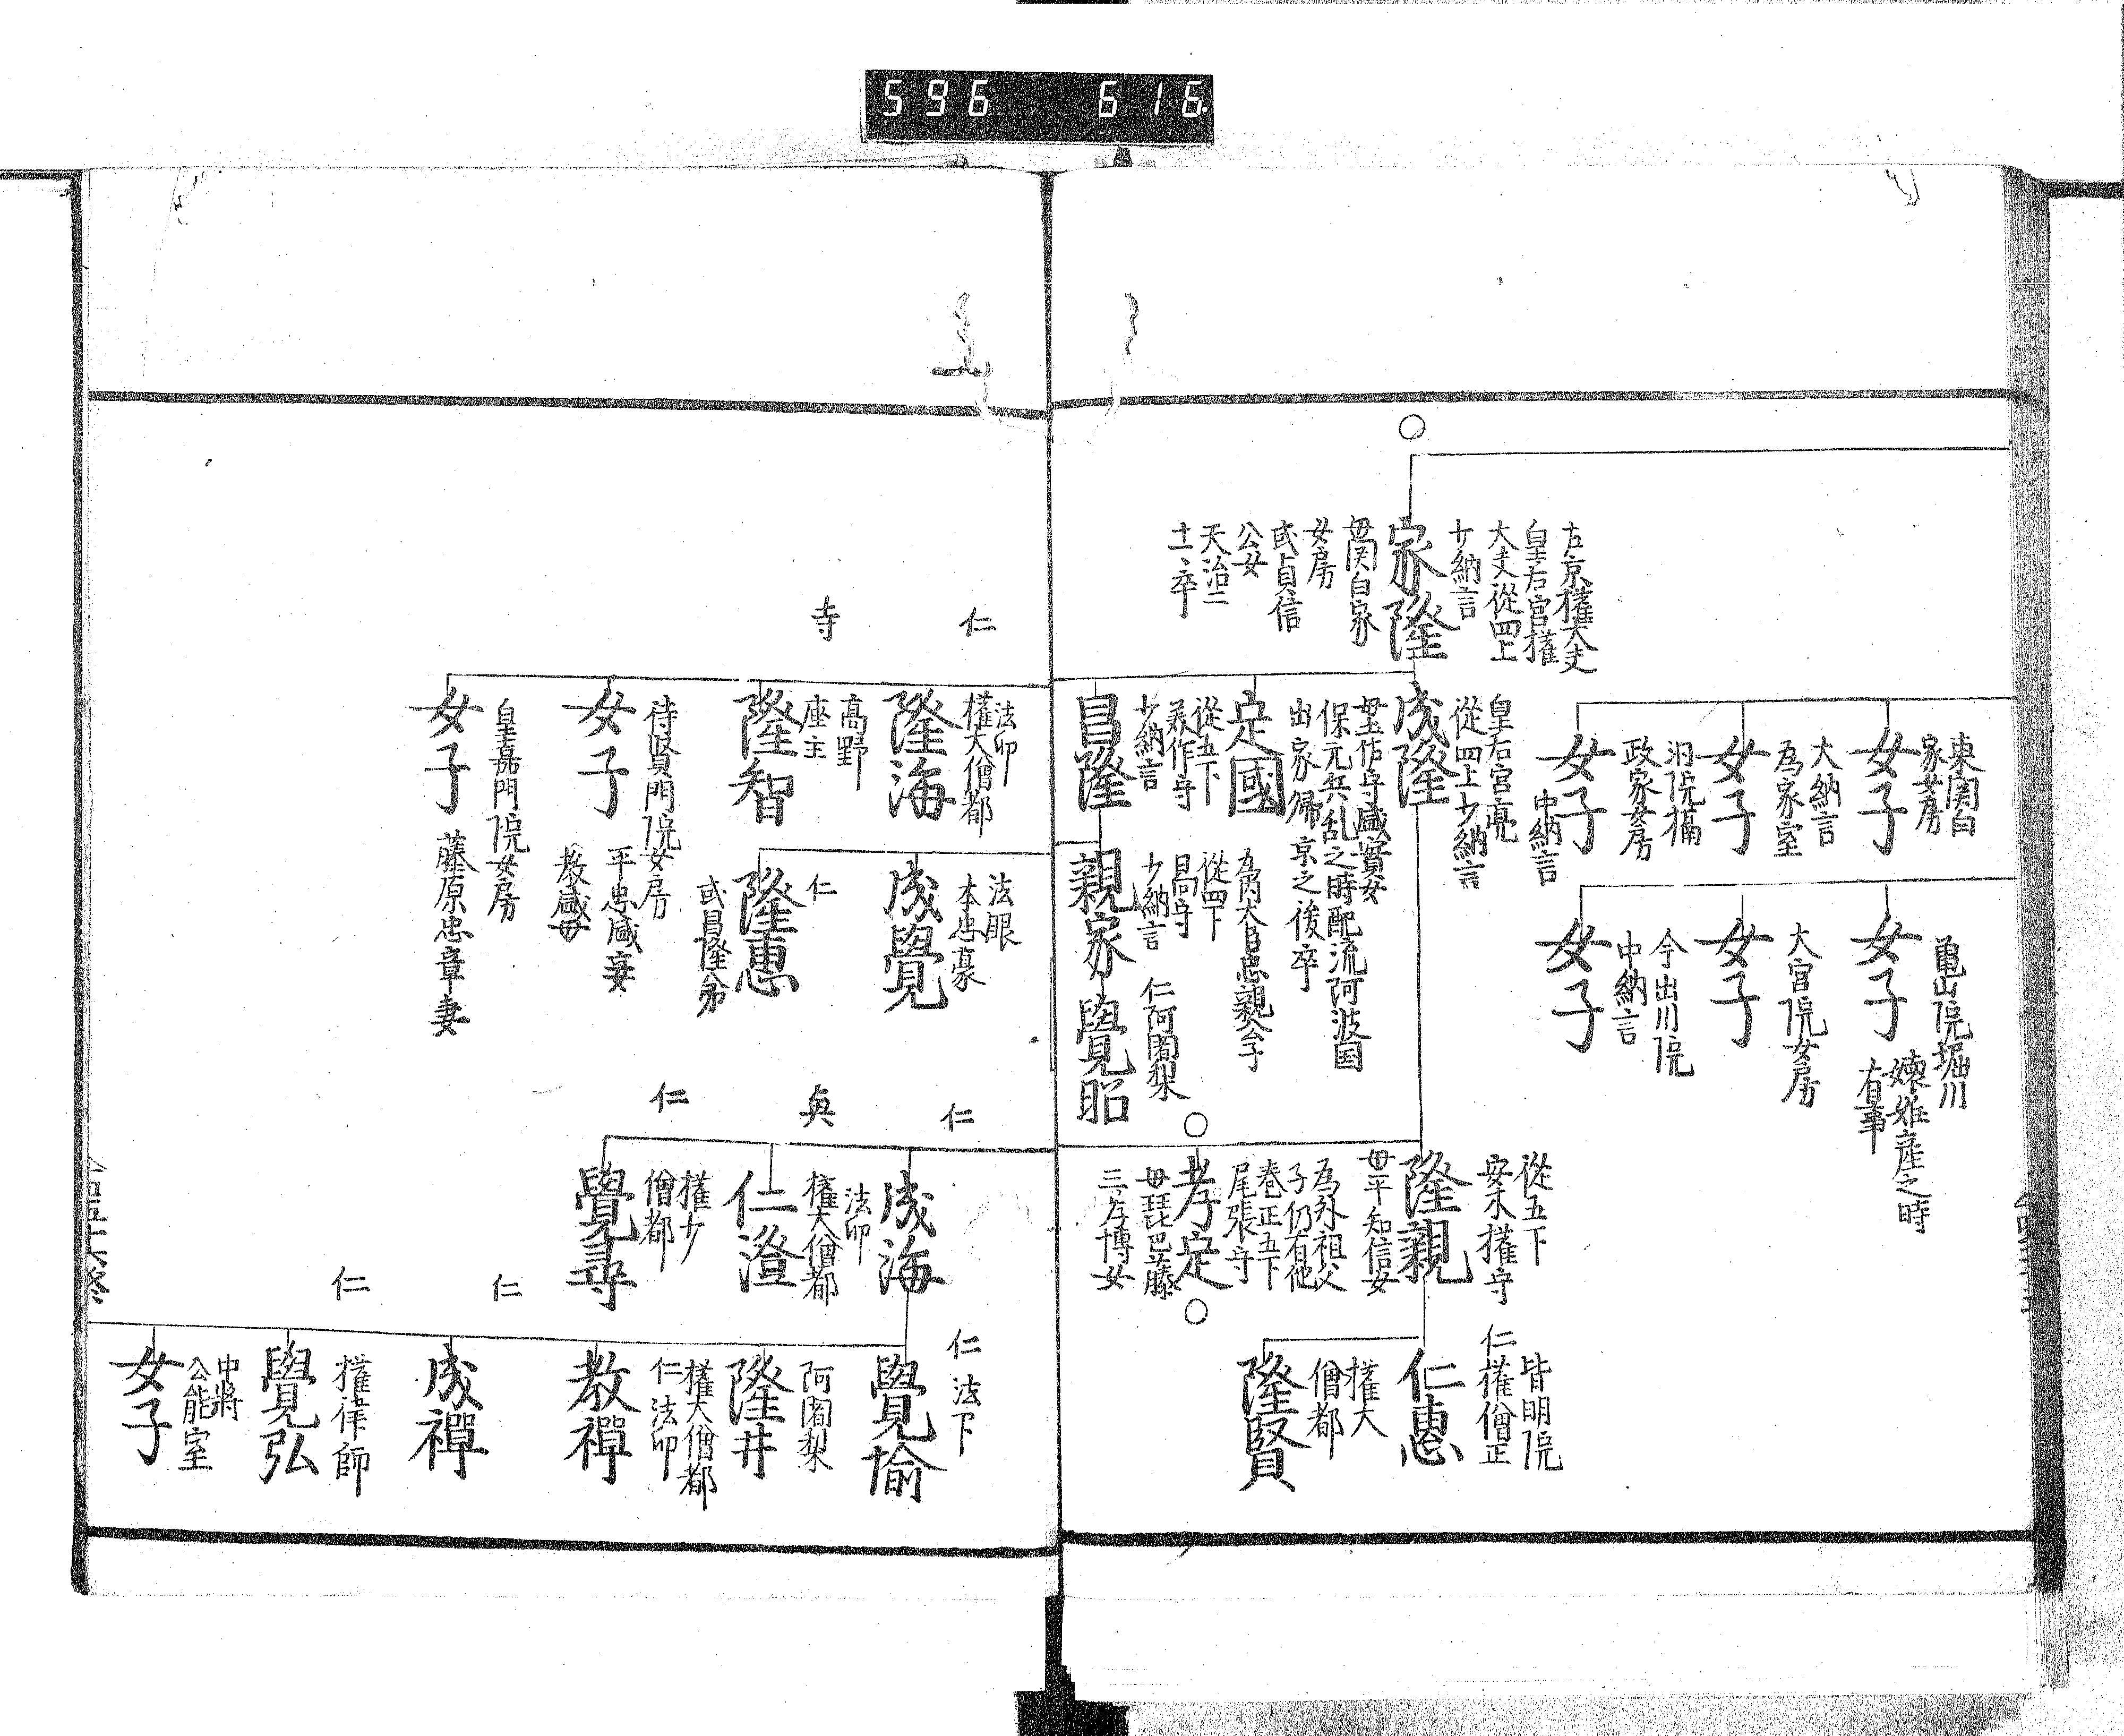 596 616
東関白
家女房
女子
大納言
為家室
女子
洞院摂
政家女房
女子
中納言
亀山院堀川
女子
嫄姫産之時
有事
大宮院女房
女子
今出川院
中納言
女子
左京権大夫
皇后宮権
大夫從四上
少納言
家隆
母関白家
女房
或貞信
公女
天治二
十一卒
皇后宮亮
從四上少納言
成隆
母土佐守盛實女
保元兵乱之時配流阿波国
出家帰京之後卒
定國
從五下
美作守
少納言
昌隆
為内大臣忠親公子
從四下
昌守
少納言
親家
仁阿闍梨
覺昭
從五下
安木権守
隆親
母平知信女
為外祖父
子仍有他
巻正五下
尾張守
孝定
母琵琶藤
三孝博女
皆明院
仁権僧正
仁惠
権大
僧都
隆賢
仁
法印
権大僧都
隆海
寺
高野
座主
隆智
待賢門院女房
女子
平忠盛妾
教盛母
皇嘉門院女房
女子
藤原忠章妻
法眼
本忠豪
成覺
仁
隆惠
或昌隆弟
仁
成海
法印
権大僧都
仁澄
仁
権少
僧都
覺尋
仁法下
覺愉
阿闍梨
隆井
権大僧都
仁法印
教禅
仁
成禅
仁
権律師
覺弘
中将
公能室
女子